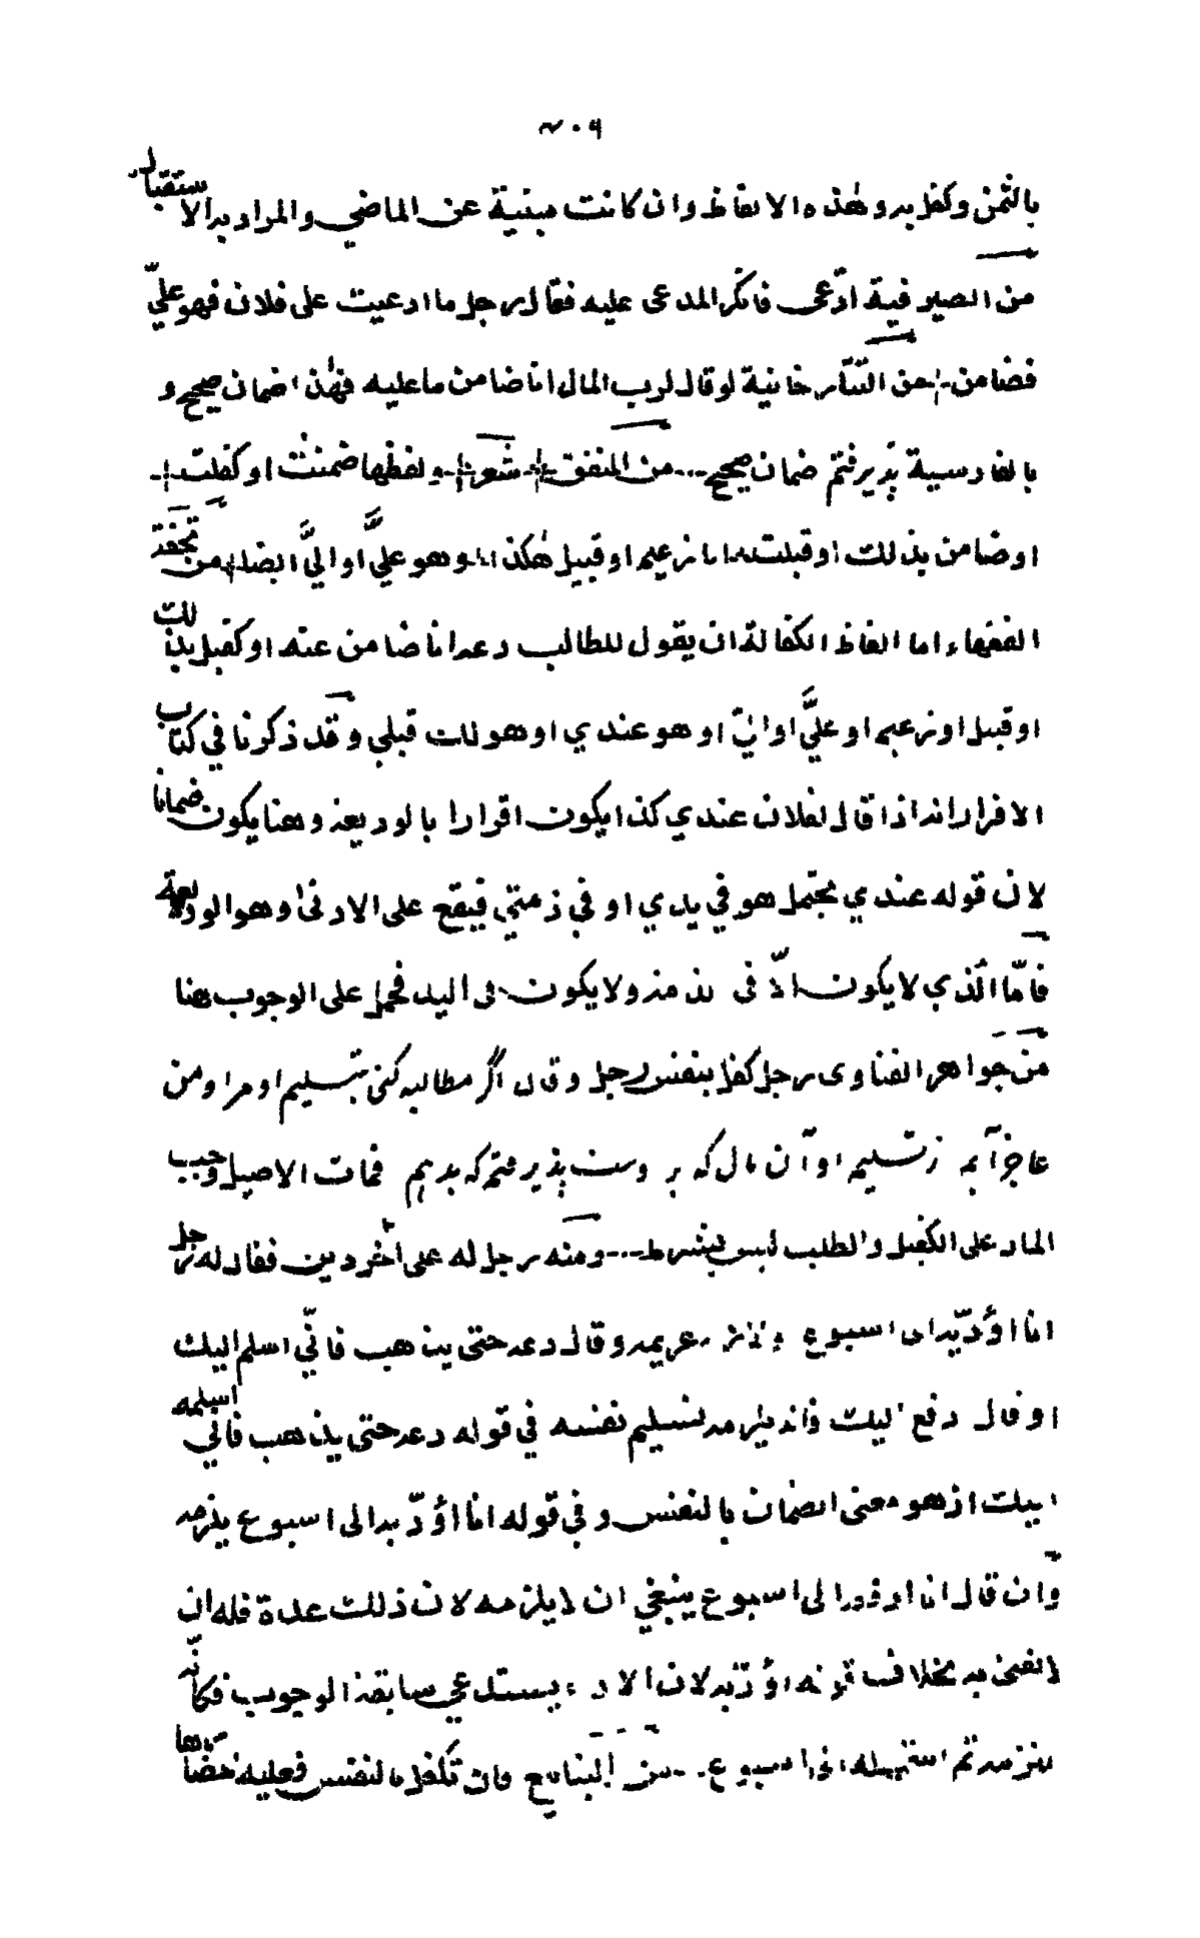 ٢٠٩
بالثمن وكفل به وهذه الالفاظ وان كانت مبنية عن الماضي والمراد به الاستقبال
من الصيرفية ادّعى فانكر المدعى عليه فقال رجل ما ادعيت على فلان فهو عليّ
فضامن من التتار خانية لو قال لرب المال انا ضامن ما عليه فهذا ضمان صحيح و
بالفارسية پذيرفتم ضمان صحيح من المتفق شعر ولفظها ضمنت او كفلت
او ضامن بذلك او قبلت انا زعيم او قبيل هكذا وهو عليَّ او اليَّ ايضا من تحفة
الفقهاء اما الفاظ الكفالة ان يقول للطالب دعه انا ضامن عنه او كفيل بذلك
او قبيل او زعيم او عليَّ او اليّ او هو عندي او هو لك قبلي وقد ذكرنا في كتاب
الاقرار انه اذا قال لفلان عندي كذا يكون اقرارا بالوديعة وهنا يكون ضمانا
لان قوله عندي يحتمل هو في يدي او في ذمتي فيقع على الادنى وهو الوديعة
فامّا الّذي لا يكون الاّ في الذمة ولا يكون في اليد فحمل على الوجوب هنا
من جواهر الفتاوى رجل كفل بنفس رجل وقال اگر مطالبه كنى بتسليم او مرا ومن
عاجز آيم ز تسليم او آن مال كه بر وست پذيرفتم كه بدهم فمات الاصيل وجب
المال على الكفيل والطلب ليس بشرط ومنه رجل له على آخر دين فقال له رجل
انا اؤدّيه الى اسبوع غريمه وقال دعه حتى يذهب فانّي اسلم اليك
او قال دفع اليك فانه يلزمه تسليم نفسه في قوله دعه حتى يذهب فاني اسلمه
اليك اذ هو معنى الضمان بالنفس وفي قوله انا اؤدّيه الى اسبوع يلزمه
وان قال انا اوفيه الى اسبوع ينبغي ان لا يلزمه لان ذلك عدة فله ان
لا يفى به بخلاف قوله اؤدّيه لان الاداء يستدعي سابقة الوجوب فكأنّه
يلزمه ثم استمهله الى اسبوع من الينابيع فان تكفل بالنفس فعليه احضارها